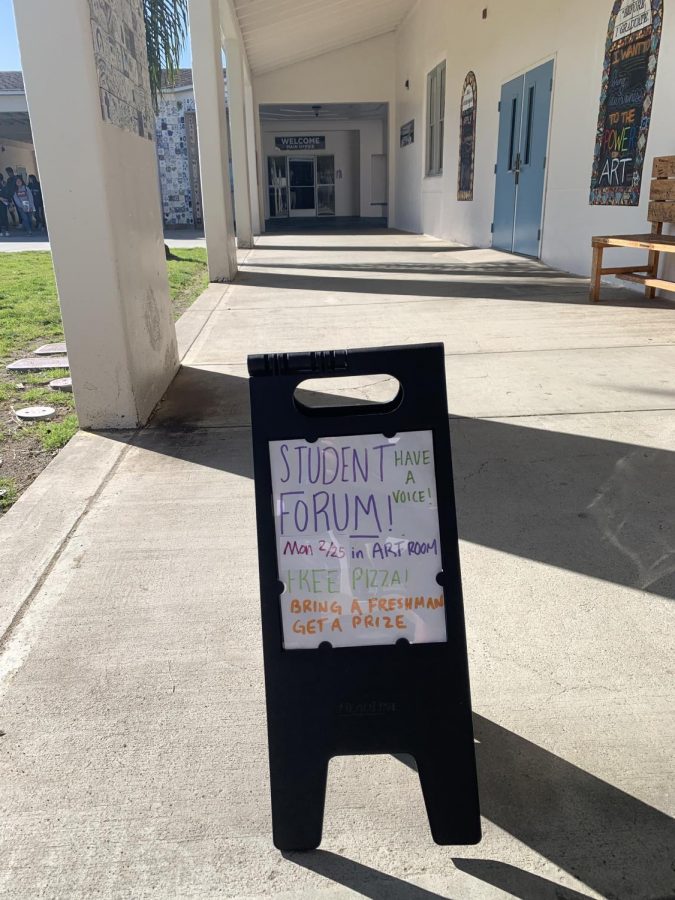 WELCOME
MAIN OFFICE
I WANT
TO THE
POWER
OF
ART
STUDENT
FORUM!
HAVE
A
VOICE!
Mon 2/25 in ART ROOM
FREE PIZZA!
BRING A FRESHMAN
GET A PRIZE